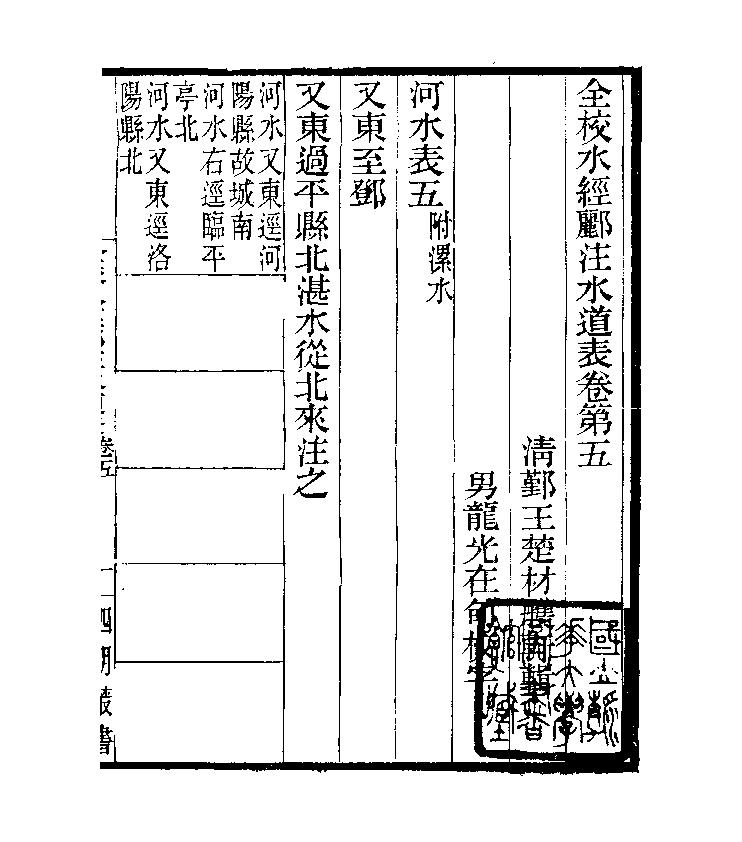 全校水經酈注水道表卷第五
清鄞王楚材
男龍光在
河水表五
附漯水
又東至鄧
又東過平縣北湛水從北來注之
河水又東逕河
陽縣故城南
河水右逕臨平
亭北
河水又東逕洛
陽縣北
四明叢書